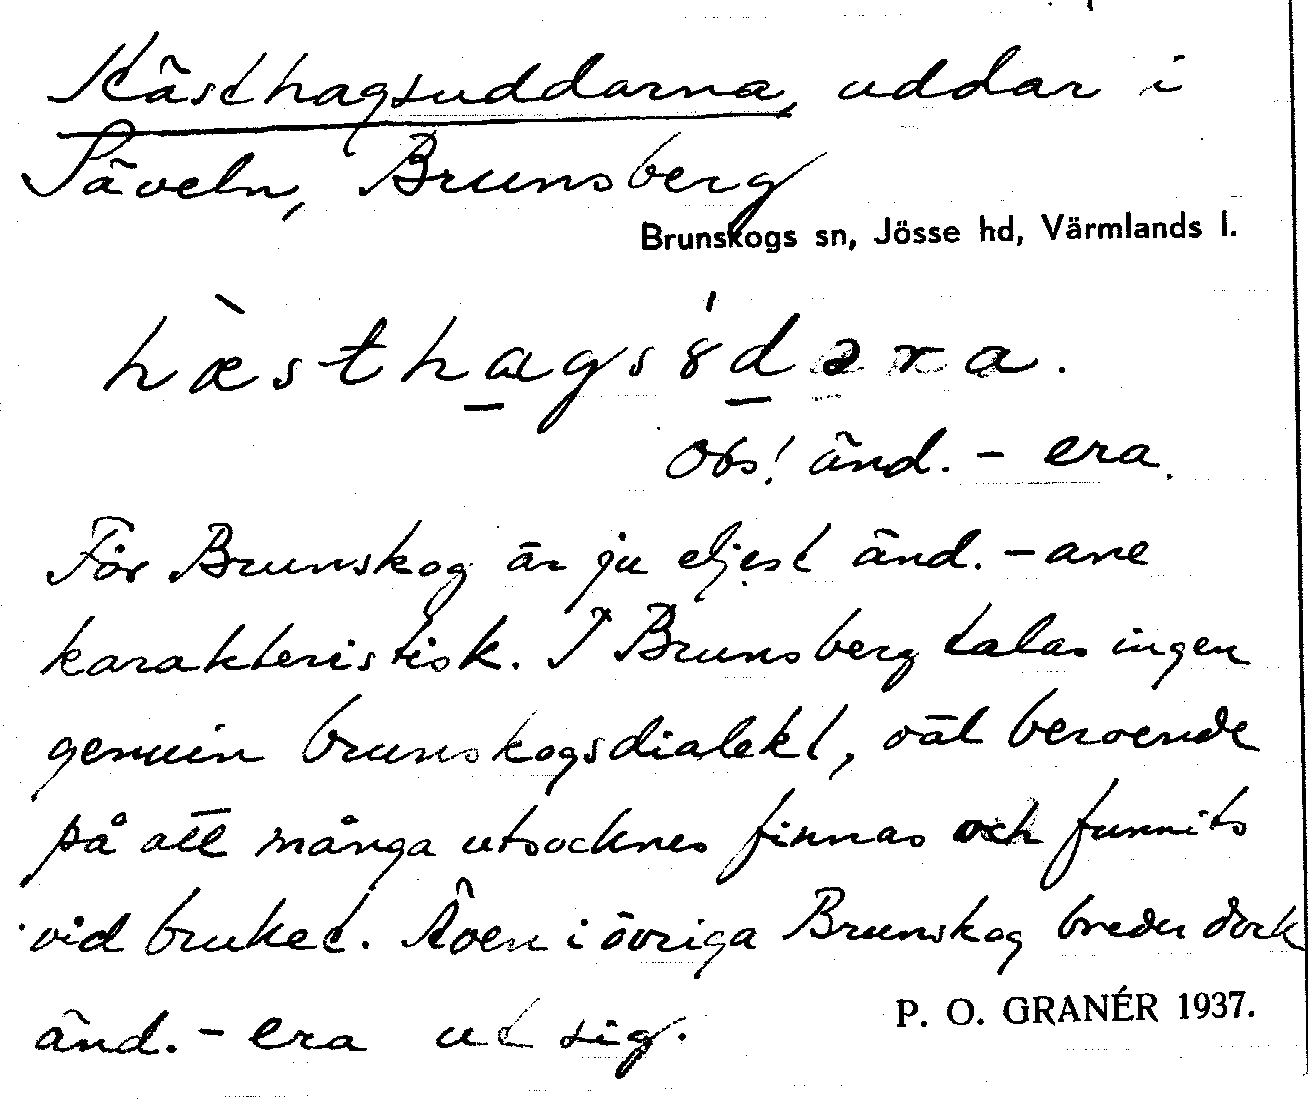 Hästhagsuddarna, uddar i
Säveln, Brunsberg
Brunskogs sn, Jösse hd, Värmlands l.
hæ̀sthags8́dəra.
Obs! änd. - era.
För Brunskog är ju eljest änd. - ane
karakteristisk. I Brunsberg talas ingen
genuin brunskogsdialekt, väl beroende
på att många utsocknes finnas och funnits
vid bruket. Även i övriga Brunskog breder dock
änd. - era ut sig.
P. O. GRANÉR 1937.